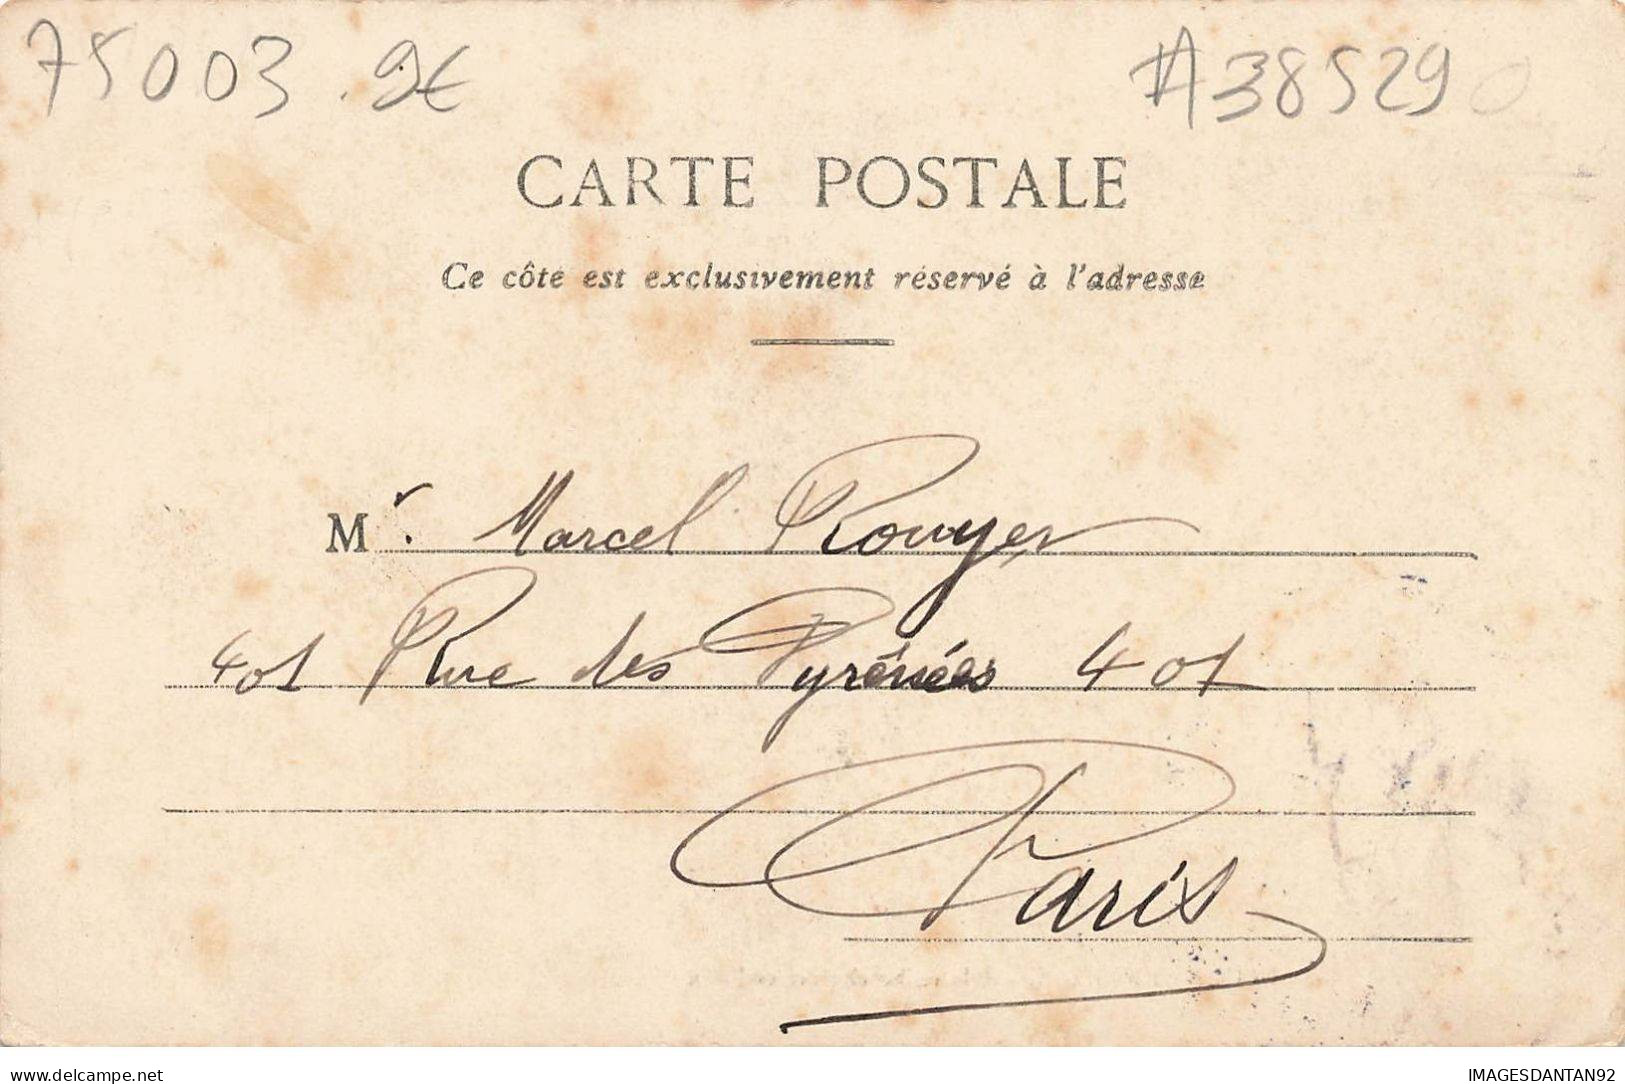 75003 9€ #A38529
CARTE POSTALE
Ce côté est exclusivement réservé à l'adresse
Mr. Marcel Rouyer
401 Rue des Pyrénées 401
Paris
www.delcampe.net IMAGESDANTAN92